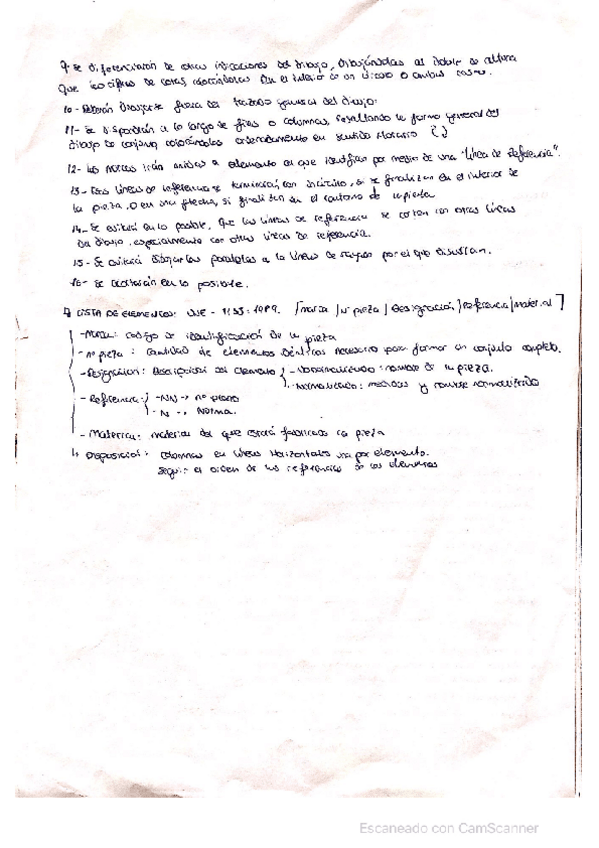 9- Se diferenciarán de otras indicaciones del dibujo, dibujándolas al doble de altura
que las cifras de cotas, colocándolas en el interior de un círculo o ambas cosas.
10- Deberán dibujarse fuera del trazado general del dibujo.
11- Se dispondrán a lo largo de filas o columnas, resaltando la forma general del
dibujo de conjunto colocándolas ordenadamente en sentido Horario
12- Las marcas irán unidas a elemento al que identifica por medio de una "línea de Referencia".
13- Las líneas de referencia se terminarán con un circulito, si se finalizan en el interior de
la pieza, o en una flecha, si finalizan en el contorno de la pieza
14- Se evitará en lo posible, que las líneas de referencia se corten con otras líneas
del dibujo, especialmente con otras líneas de referencia.
15- Se evitará dibujarlas paralelas a la líneas de rayado por el que discurran.
16- Se acotarán en lo posible.
LISTA DE ELEMENTOS: UNE - 1135:1989. / Marca / nº pieza / Designación / Referencia / Material
- Marca: código de identificación de la pieza
- nº pieza: cantidad de elementos idénticos necesario para formar un conjunto completo.
- Designación: Descripción del elemento - No normalizado: nombre de la pieza.
- Normalizado: medidas y nombre normalizado
- Referencia: - NN → nº plano
- N → Norma.
- Material: material del que estará fabricado la pieza
Disposición: columnas en líneas Horizontales una por elemento.
Seguir el orden de las referencias de los elementos
Escaneado con CamScanner